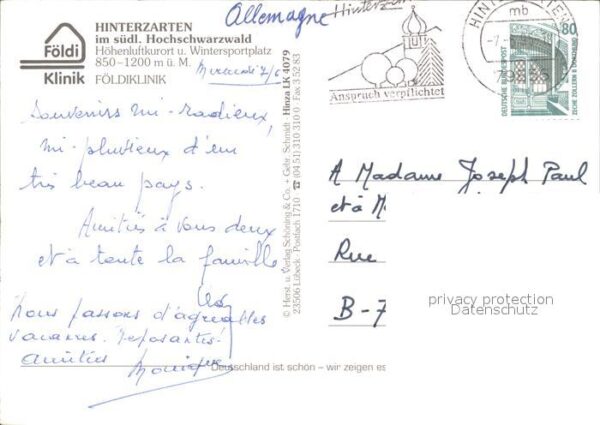 Allemagne
HINTERZARTEN
im südl. Hochschwarzwald
Höhenluftkurort u. Wintersportplatz
850–1200 m ü. M.
FÖLDIKLINIK
Földi
Klinik
Mercredi
Souvenirs mi-radieux,
mi-pluvieux d'un
très beau pays.
Amitiés à vous deux
et à toute la famille
Nous passons d'agréables
vacances. Reposantes!
Amitiés
Monique
© Herst. u. Verlag Schöning & Co. + Gebr. Schmidt · Hinza LK 4079
23506 Lübeck · Postfach 1710 · ☎ (04 51) 310 310 · Fax 3 52 83
Anspruch verpflichtet
mb
80
DEUTSCHE BUNDESPOST
ZECHE ZOLLERN II DORTMUND
A Madame Joseph Paul
et à M
Rue
B-7
privacy protection
Datenschutz
Deutschland ist schön – wir zeigen es